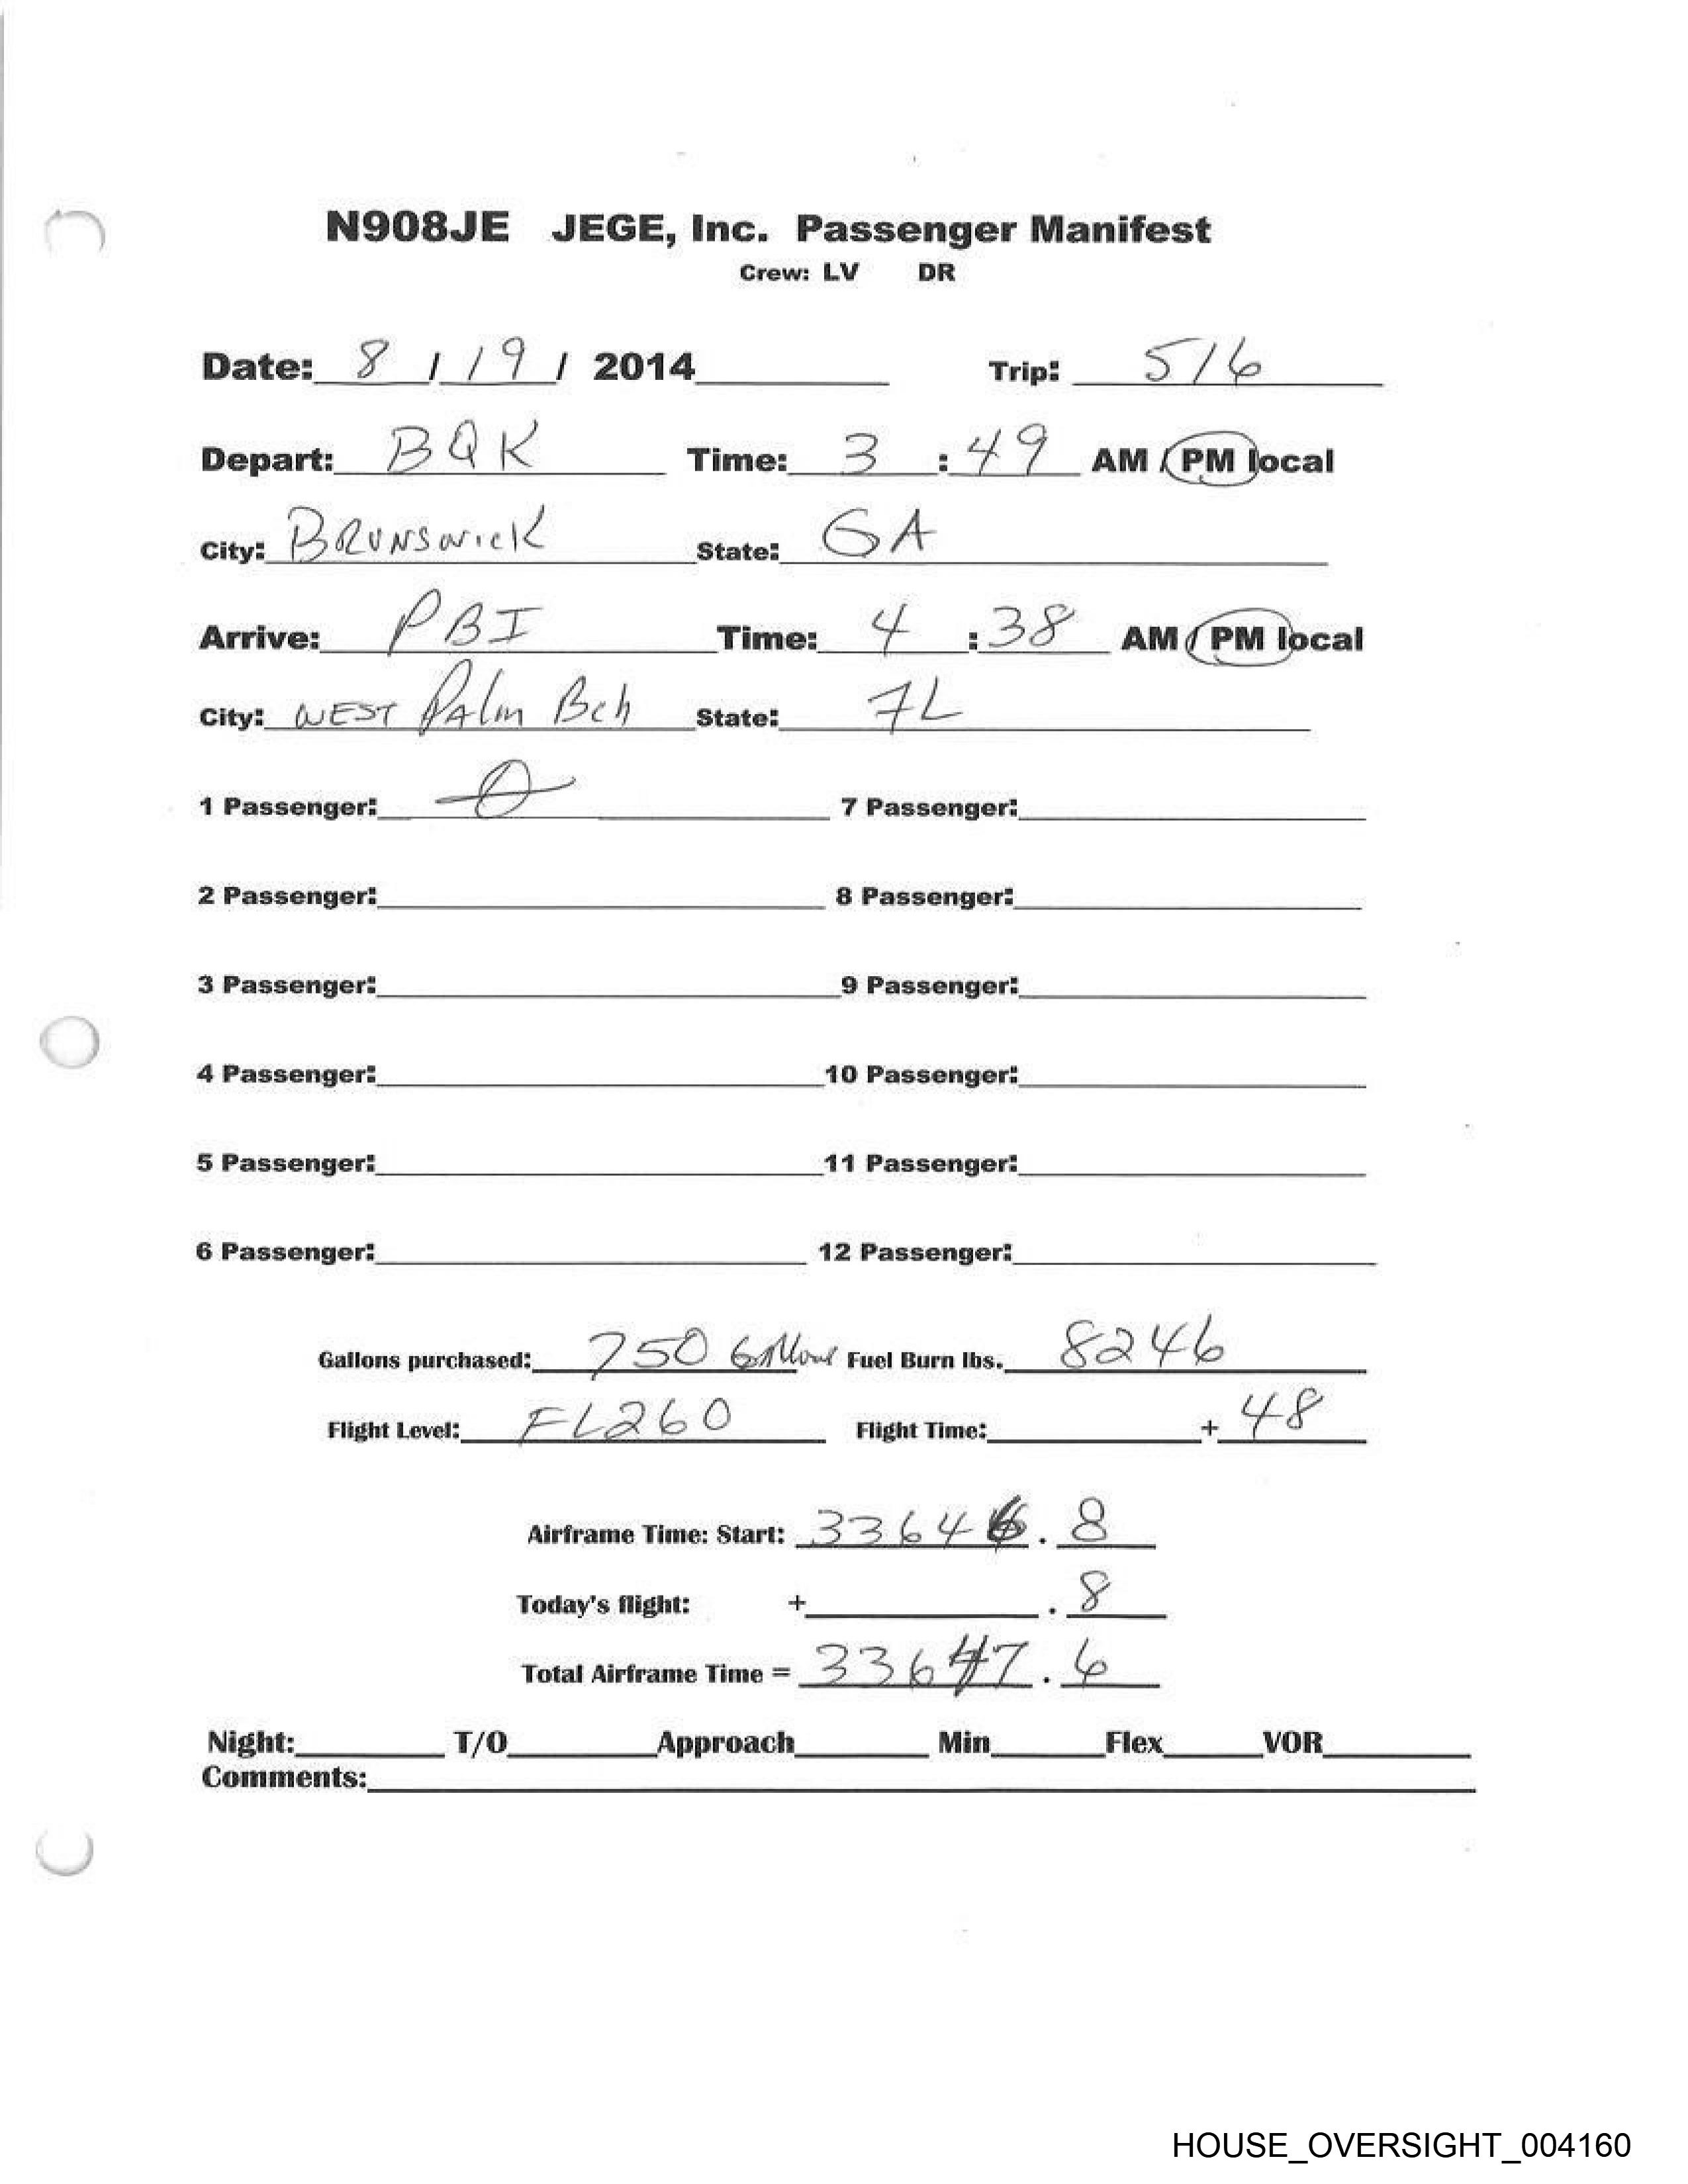 N908JE JEGE, Inc. Passenger Manifest
Crew: LV DR
Date: 8 / 19 / 2014 Trip: 516
Depart: BQK Time: 3 : 49 AM / PM local
City: BRUNSWICK State: GA
Arrive: PBI Time: 4 : 38 AM / PM local
City: WEST PAlm Bch State: FL
1 Passenger: 0 7 Passenger:
2 Passenger: 8 Passenger:
3 Passenger: 9 Passenger:
4 Passenger: 10 Passenger:
5 Passenger: 11 Passenger:
6 Passenger: 12 Passenger:
Gallons purchased: 750 GAllons Fuel Burn lbs. 8246
Flight Level: FL260 Flight Time: + 48
Airframe Time: Start: 33646 . 8
Today's flight: + . 8
Total Airframe Time = 33647 . 6
Night: T/O Approach Min Flex VOR
Comments:
HOUSE_OVERSIGHT_004160